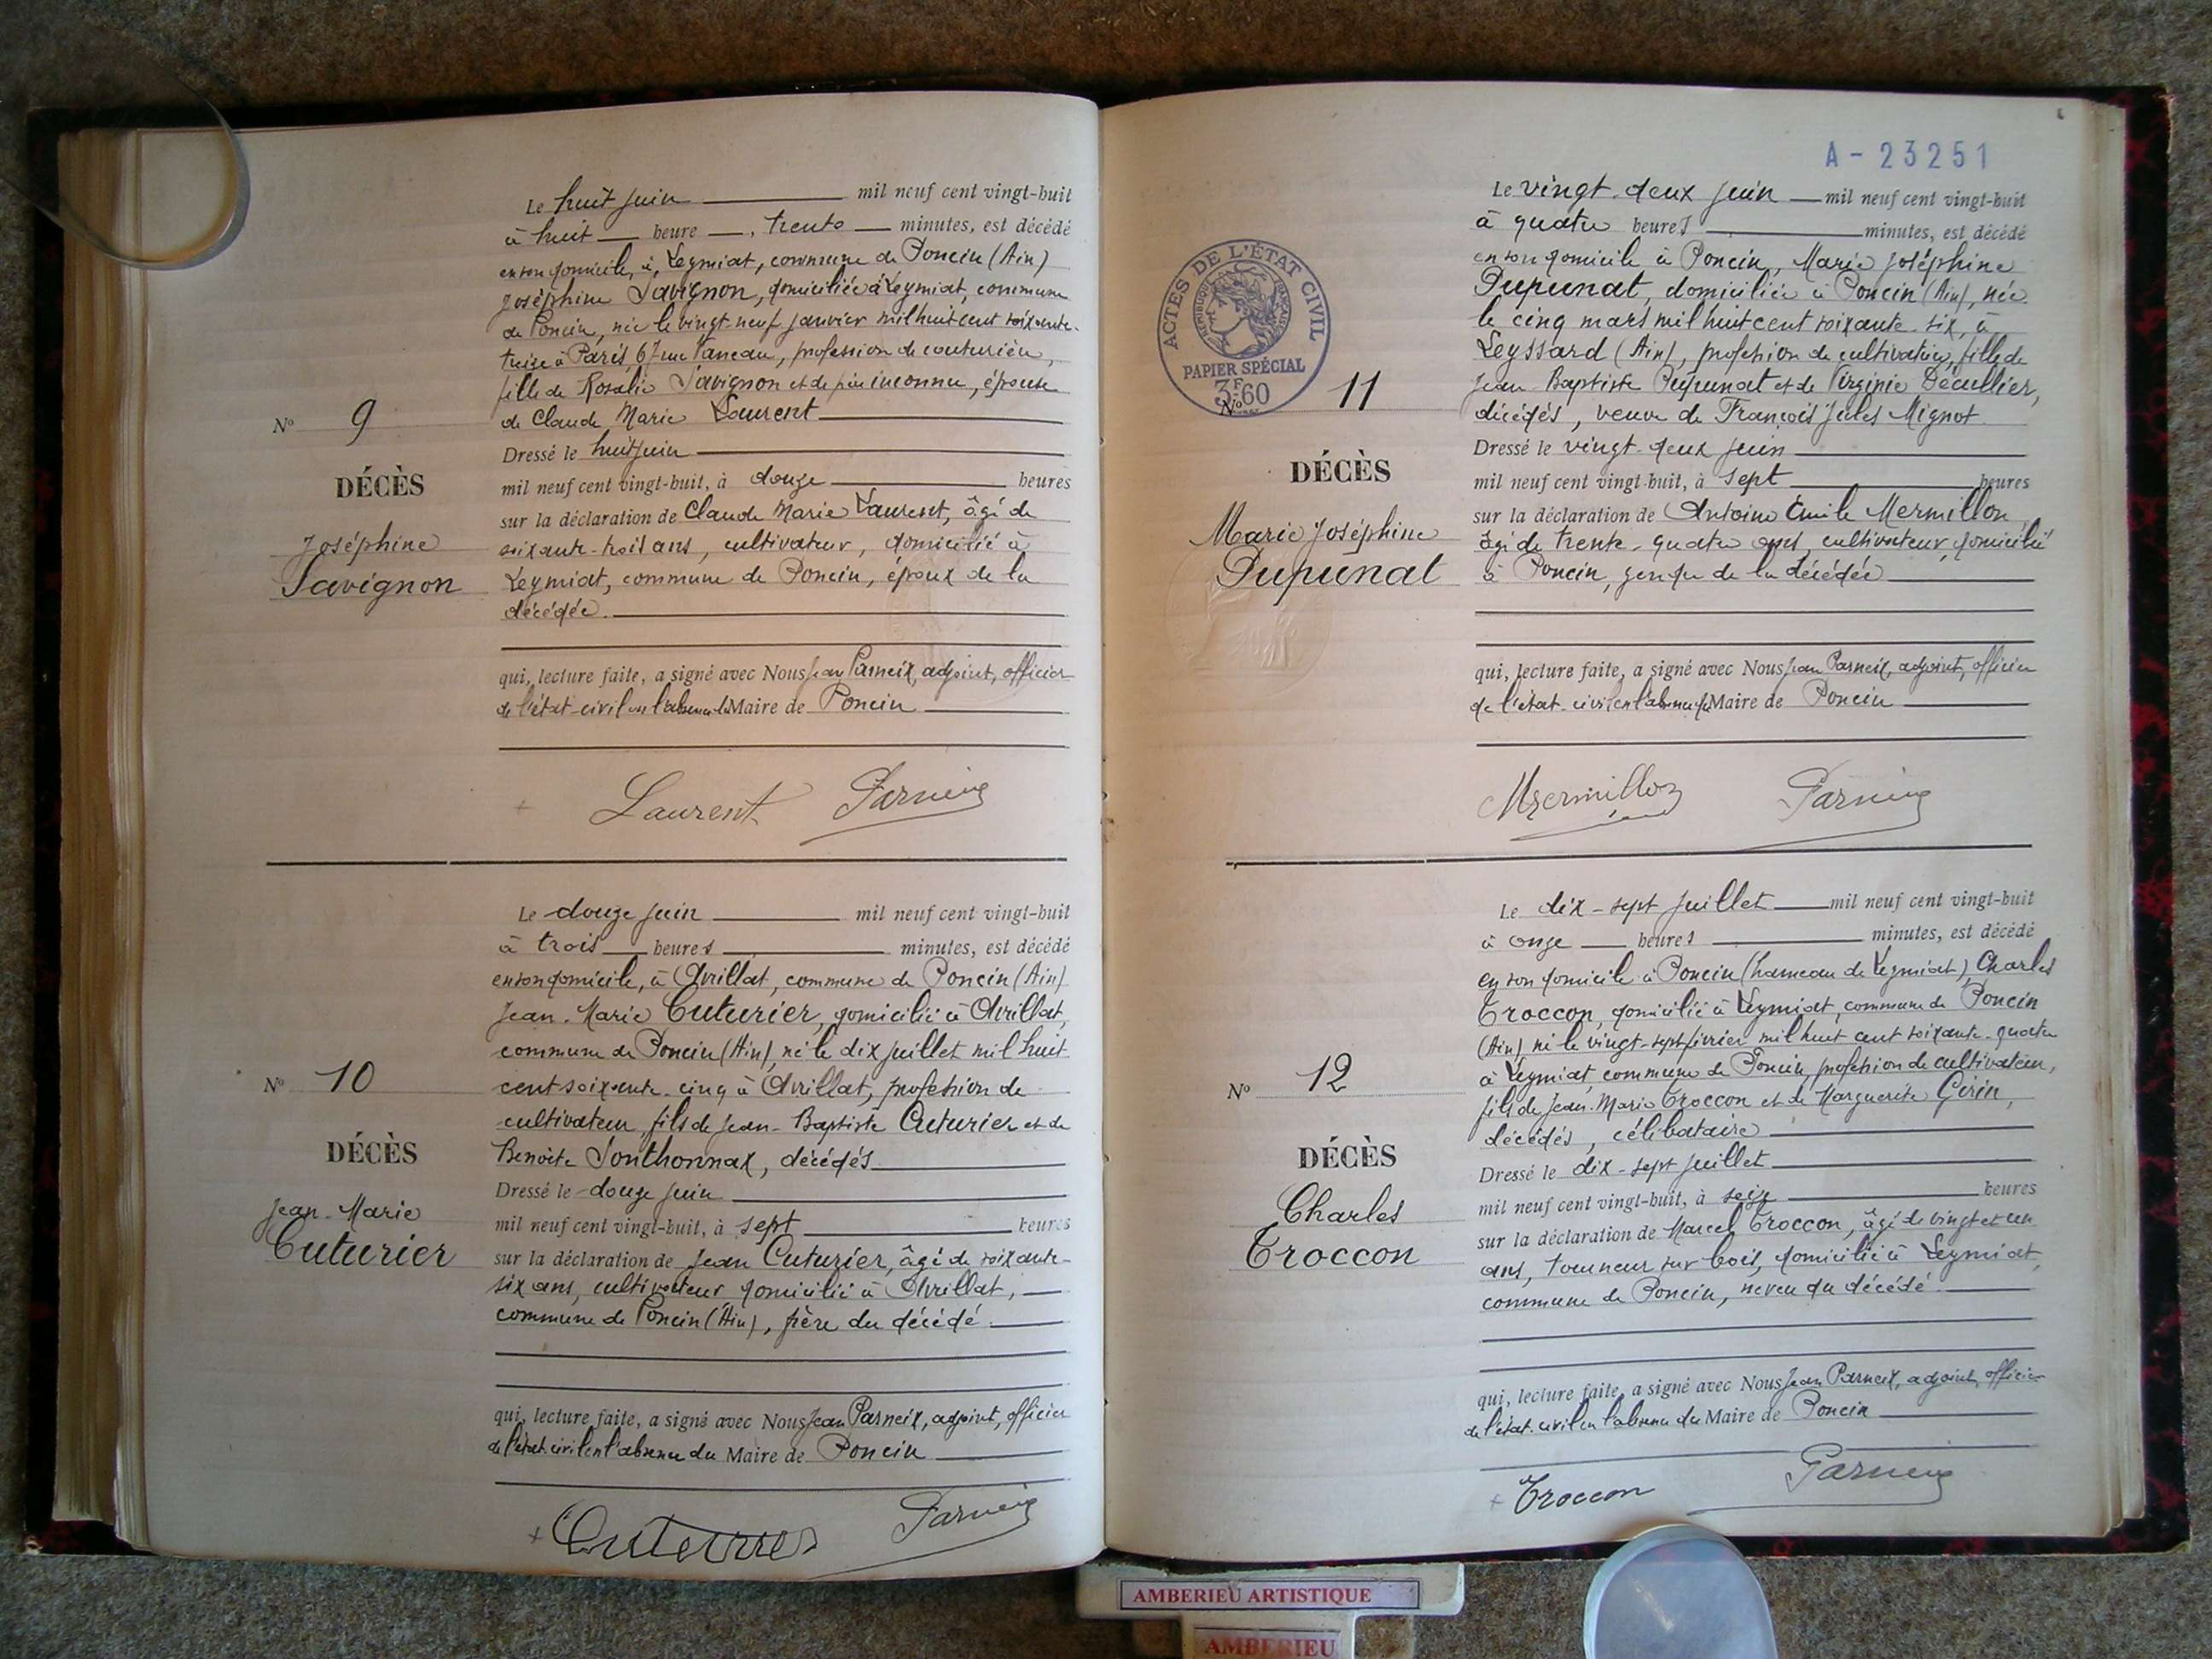 Le huit juin mil neuf cent vingt-huit
à huit heure, trente minutes, est décédé
en son domicile, à Leymiat, commune de Poncin (Ain)
Joséphine Savignon, domiciliée à Leymiat, commune
de Poncin, née le vingt-neuf janvier mil huit cent soixante-
treize à Paris, 67 rue Vaneau, profession de couturière,
fille de Rosalie Savignon et de père inconnu, épouse
de Claude Marie Laurent
Dressé le huit juin
mil neuf cent vingt-huit, à douze heures
sur la déclaration de Claude Marie Laurent, âgé de
soixante-trois ans, cultivateur, domicilié à
Leymiat, commune de Poncin, époux de la
décédée.
qui, lecture faite, a signé avec Nous Jean Parneix, adjoint, officier
de l'état-civil en l'absence du Maire de Poncin
N° 9
DÉCÈS
Joséphine
Savignon
Laurent Parneix
Le douze juin mil neuf cent vingt-huit
à trois heures minutes, est décédé
en son domicile, à Avrillat, commune de Poncin (Ain)
Jean-Marie Cuturier, domicilié à Avrillat,
commune de Poncin (Ain), né le dix juillet mil huit
cent soixante-cinq à Avrillat, profession de
cultivateur, fils de Jean-Baptiste Cuturier et de
Benoîte Sonthonnax, décédés
Dressé le douze juin
mil neuf cent vingt-huit, à sept heures
sur la déclaration de Jean Cuturier, âgé de soixante-
six ans, cultivateur domicilié à Avrillat,
commune de Poncin (Ain), frère du décédé
qui, lecture faite, a signé avec Nous Jean Parneix, adjoint, officier
de l'état civil en l'absence du Maire de Poncin
N° 10
DÉCÈS
Jean-Marie
Cuturier
Cuturier Parneix
A-23251
ACTES DE L'ÉTAT CIVIL
RÉPUBLIQUE FRANÇAISE
PAPIER SPÉCIAL
3F60
Le vingt-deux juin mil neuf cent vingt-huit
à quatre heures minutes, est décédé
en son domicile à Poncin, Marie Joséphine
Pupunat, domiciliée à Poncin (Ain), née
le cinq mars mil huit cent soixante-six, à
Leyssard (Ain), profession de cultivatrice, fille de
Jean-Baptiste Pupunat et de Virginie Décullier,
décédés, veuve de François Jules Mignot
Dressé le vingt-deux juin
mil neuf cent vingt-huit, à sept heures
sur la déclaration de Antoine Emile Mermillon
âgé de trente-quatre ans, cultivateur, domicilié
à Poncin, gendre de la décédée
qui, lecture faite, a signé avec Nous Jean Parneix, adjoint, officier
de l'état-civil en l'absence du Maire de Poncin
N° 11
DÉCÈS
Marie Joséphine
Pupunat
Mermillon Parneix
Le dix-sept juillet mil neuf cent vingt-huit
à onze heures minutes, est décédé
en son domicile à Poncin (hameau de Leymiat) Charles
Troccon, domicilié à Leymiat, commune de Poncin
(Ain), né le vingt-sept février mil huit cent soixante-quatre
à Leymiat, commune de Poncin, profession de cultivateur,
fils de Jean-Marie Troccon et de Marguerite Girin,
décédés, célibataire
Dressé le dix-sept juillet
mil neuf cent vingt-huit, à seize heures
sur la déclaration de Marcel Troccon, âgé de vingt et un
ans, tourneur sur bois, domicilié à Leymiat,
commune de Poncin, neveu du décédé
qui, lecture faite, a signé avec Nous Jean Parneix, adjoint, officier
de l'état-civil en l'absence du Maire de Poncin
N° 12
DÉCÈS
Charles
Troccon
Troccon Parneix
AMBERIEU ARTISTIQUE
AMBERIEU